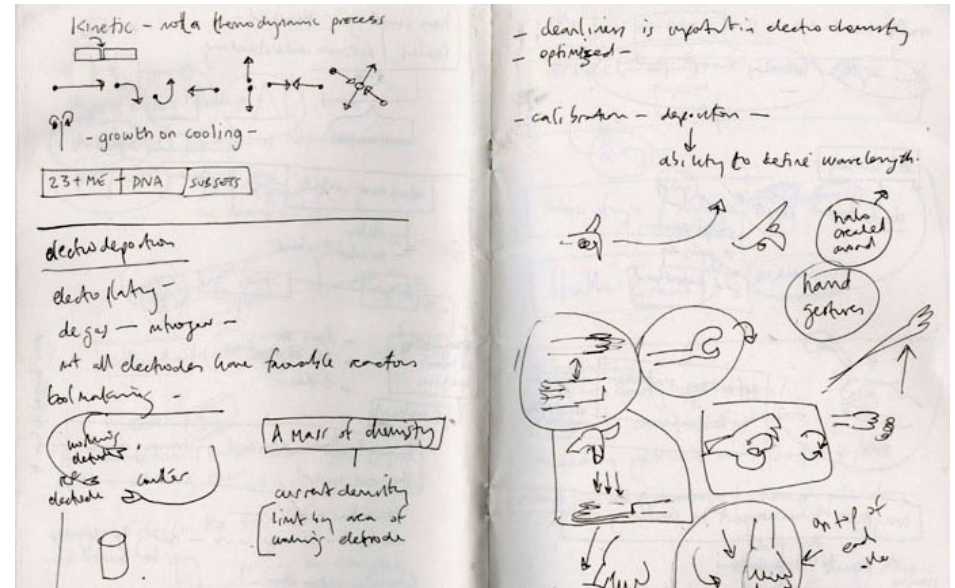 Kinetic - not a thermodynamic process
- growth on cooling -
23+ME + DNA SUBSETS
electrodeposition
electroplating -
degas - nitrogen -
not all electrodes have favourable reactions
toolmaking -
working
electrode
electrode counter
A MASS of chemistry
current density
limit by area of
working electrode
- cleanliness is important in electrochemistry
- optimized -
- calibration - deposition -
ability to define wavelength.
halo
created
around
hand
gestures
on top of
each